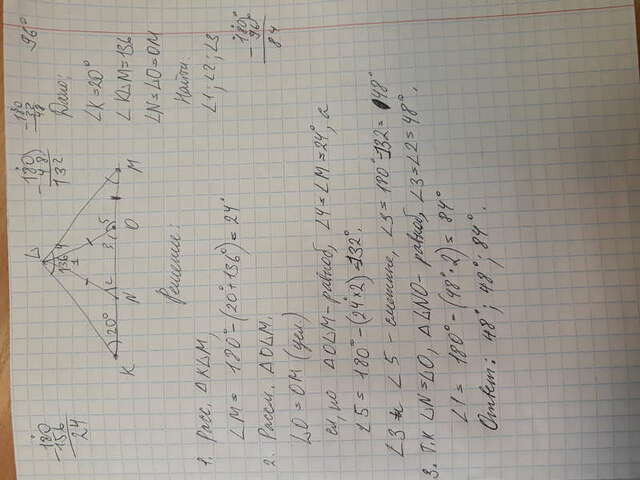 180
- 156
24
180
- 48
132
- 180
132
48
96°
L
136
4
1
K
20°
2
3
5
N
O
M
Дано:
∠K = 20°
∠KLM = 136
LN = LO = OM
Найти:
∠1; ∠2; ∠3
Решение:
1. Расс. △KLM,
∠M = 180° - (20° + 136°) = 24°
180°
- 96°
84
2. Рассм. △OLM.
LO = OM (усл.)
сл, но △OLM - равноб, ∠4 = ∠M = 24°, а
∠5 = 180° - (24° × 2) = 132°.
∠3 и ∠5 - смежные, ∠3 = 180° - 132 = 48°
3. Т.к LN = LO, △LNO - равноб, ∠3 = ∠2 = 48°.
∠1 = 180° - (48° · 2) = 84°
Ответ: 48°; 48°; 84°.